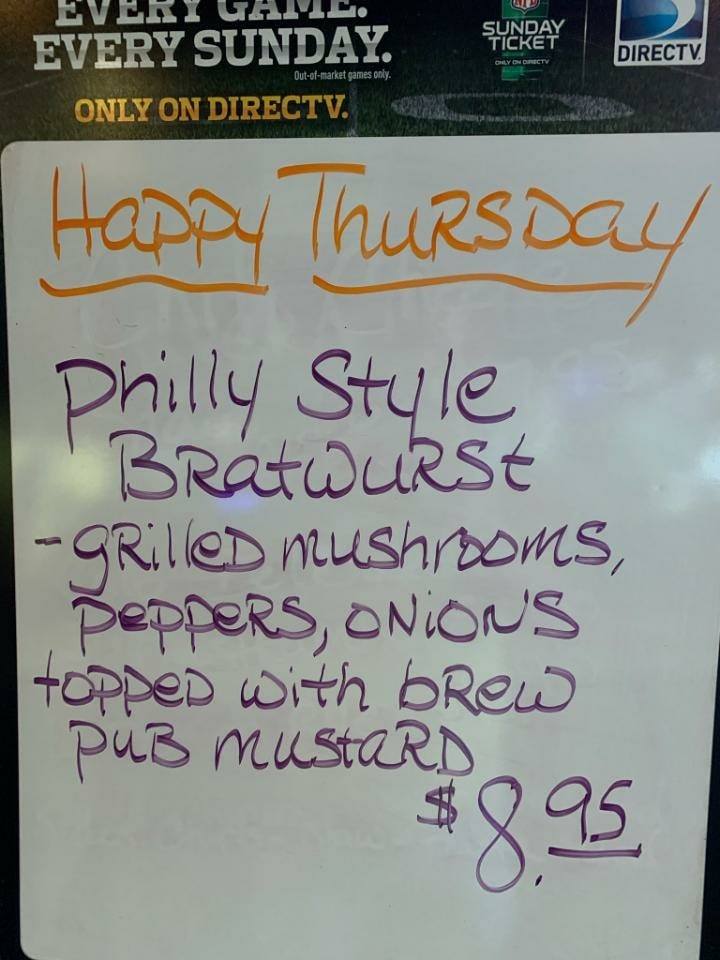 EVERY GAME.
EVERY SUNDAY.
Out-of-market games only.
ONLY ON DIRECTV.
NFL
SUNDAY
TICKET
ONLY ON DIRECTV
DIRECTV
Happy Thursday
Philly Style
Bratwurst
-grilled mushrooms,
peppers, onion's
topped with brew
pub mustard
$8.95